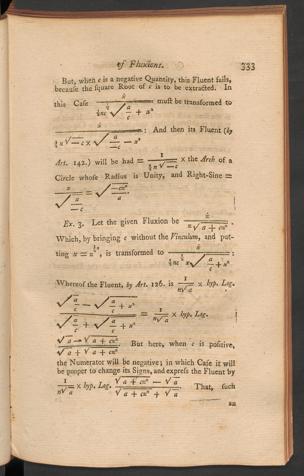 of Fluxions. 333
But, when c is a negative Quantity, this Fluent fails,
because the square Root of c is to be extracted. In
this Case u̇ / (½nc^½ √(a/c + u²)) must be transformed to
u̇ / (½n√−c × √(a/−c − u²)) : And then its Fluent (by
Art. 142.) will be had = 1/(½n√−c) × the Arch of a
Circle whose Radius is Unity, and Right-Sine =
u/√(a/−c) = √(−cu²/a).
Ex. 3. Let the given Fluxion be
Which, by bringing c without the Vinculum, and put-
ting is transformed to
Whereof the Fluent, by Art. 126. is 1/(n√a) × hyp. Log.
(√(a/c) − √(a/c + u²)) / (√(a/c) + √(a/c + u²)) = 1/(n√a) × hyp. Log.
But here, when c is positive,
the Numerator will be negative; in which Case it will
be proper to change its Signs, and express the Fluent by
1/(n√a) × hyp. Log. That, such
an